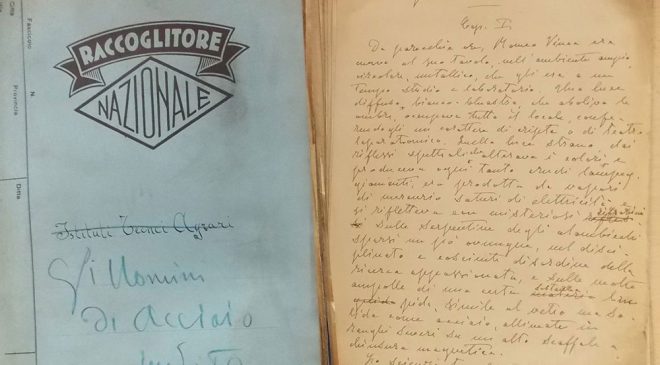 Fascicolo
N.
Provincia
Ditta
Ditta
RACCOGLITORE
NAZIONALE
Istituti Tecnici Agrari
Gli Uomini
di Acciaio
Cap. I.
Da parecchie ore, Romeo Vinca era
curvo al suo tavolo, nell'ambiente ampio
circolare, metallico, che gli era a un
tempo studio e laboratorio. Una luce
diffusa, bianco-bluastra, che aboliva le
ombre, occupava tutto il locale, confe-
rendogli un carattere di cripta o di teatro
Quella luce strana, dai
riflessi spettrali che alterava i colori e
produceva ogni tanto crudi lampeg-
giamenti, era prodotta da vapori
di mercurio saturi di elettricità e
si rifletteva con misteriosi
sulle serpentine degli alambicchi
sparsi un po' ovunque, nel disci-
plinato e cosciente disordine della
ricerca appassionata, e sulle molte
ampolle di una certa
simile al vetro ma so-
lida come acciaio, allineate in
ranghi su un alto scaffale a
chiusura magnetica.
Lo scienziato